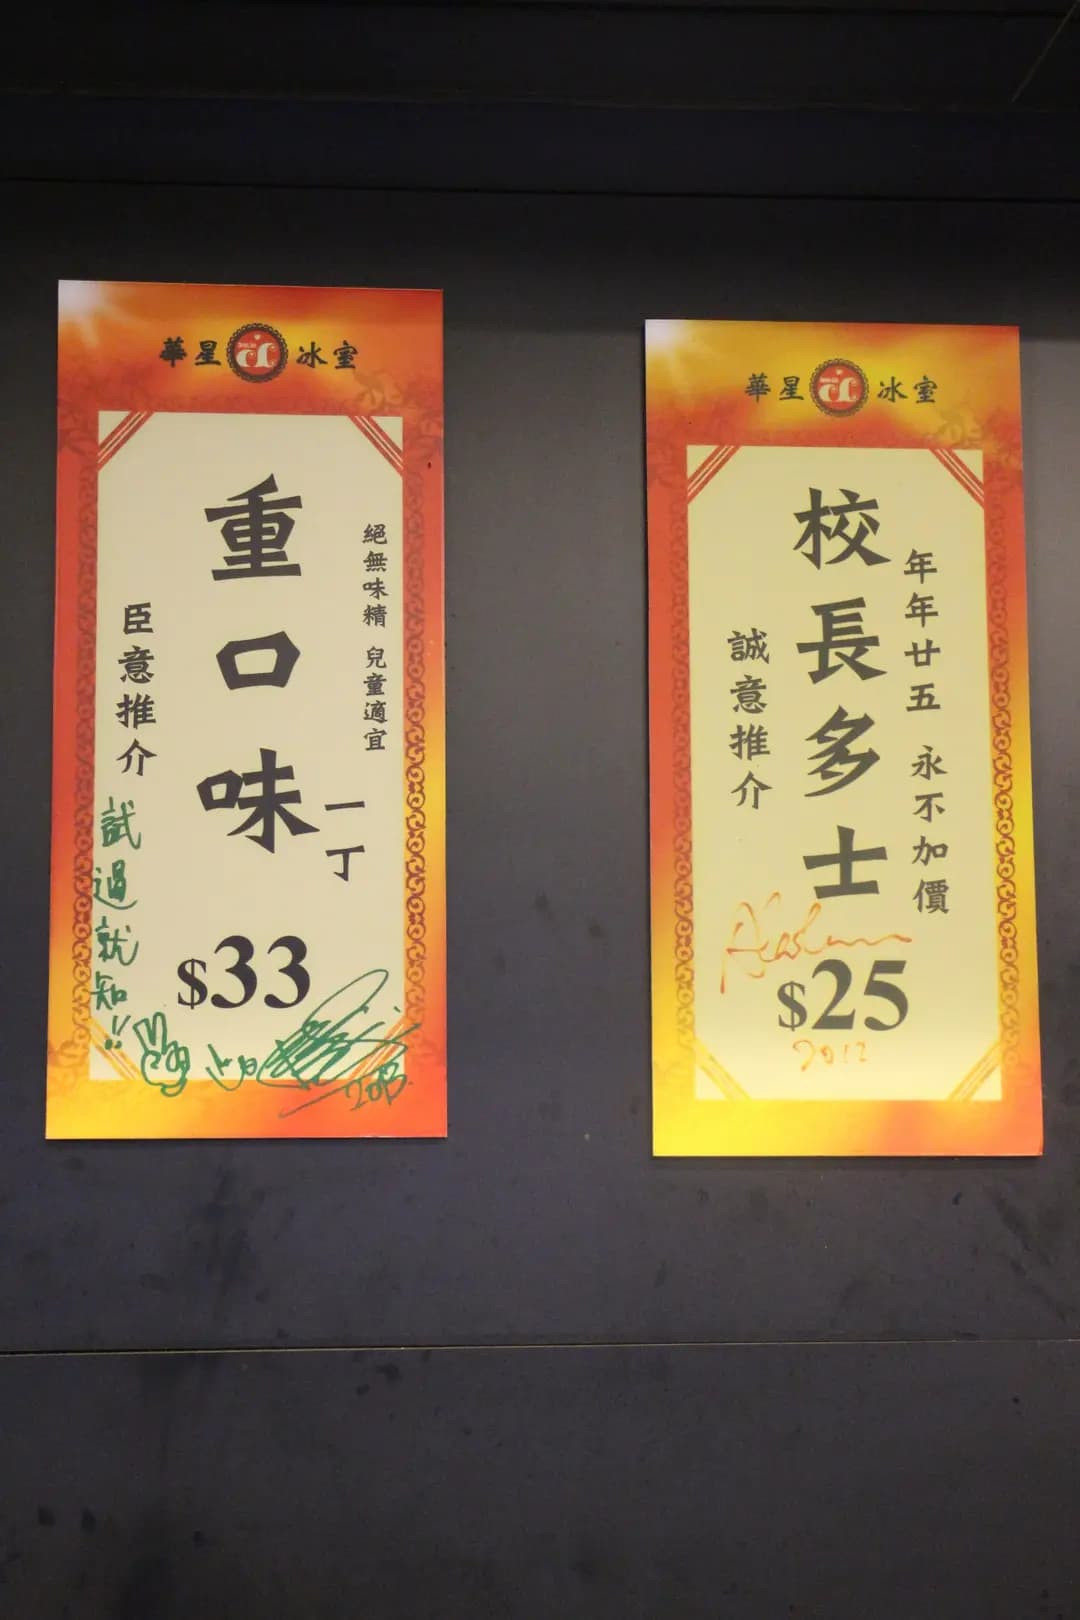 華星冰室
絕無味精 兒童適宜
重口味
一丁
臣意推介
$33
試過就知!!
2013
華星冰室
年年廿五 永不加價
校長多士
誠意推介
$25
2012